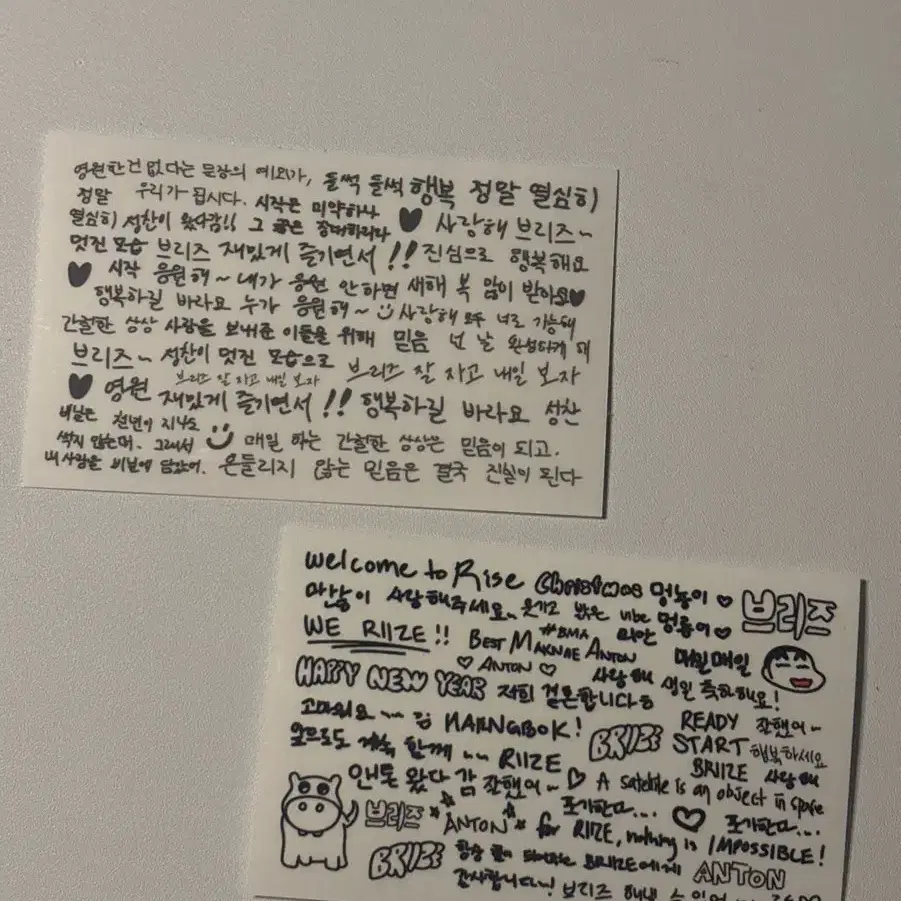 영원한건 없다는 문장의 예외가, 들썩 들썩 행복 정말 열심히
정말 우리가 됩시다. 시작은 미약하나
열심히 성찬이 왔다감!! 그 끝은 창대하리라 사랑해 브리즈~
멋진 모습 브리즈 재밌게 즐기면서 !! 진심으로 행복해요
시작 응원해~ 내가 응원 안하면 새해 복 많이 받아요
행복하길 바라요 누가 응원해~ 사랑해 모두 너로 가능해
간절한 상상 사람을 보내준 이들을 위해 믿음 넌 날 완성하게 해
브리즈~ 성찬이 멋진 모습으로 브리즈 잘 자고 내일 보자
브리즈 잘 자고 내일 보자
영원 재밌게 즐기면서 !! 행복하길 바라요 성찬
비닐은 천년이 지나도
썩지 않는데. 그래서 매일 하는 간절한 상상은 믿음이 되고.
내 사랑을 비닐에 담았어. 흔들리지 않는 믿음은 결국 진실이 된다
Welcome to Rise Christmas 멍뇽이 브리즈
많이 사랑해주세요~ 웃기고 밝은 vibe 멍룡이
WE RIIZE!! #BMA 미안
BEST MAKNAE ANTON 매일매일
ANTON 사랑해 생일 축하해요!
HAPPY NEW YEAR 저희 결혼합니다
고마워요~~ 김 HAENGBOK! BRIIZE READY 잘했어~
START 행복하세요
앞으로도 계속 함께~~ RIIZE BRIIZE 사랑해
앤톤 왔다 감 잘했어~ A satellite is an object in space
브리즈 ANTON 포기한다... 포기한다...
for RIIZE, nothing is IMPOSSIBLE!
BRIIZE 항상 힘이 되어주는 BRIIZE에게 ANTON
감사합니다! 브리즈 해낼 수 있어